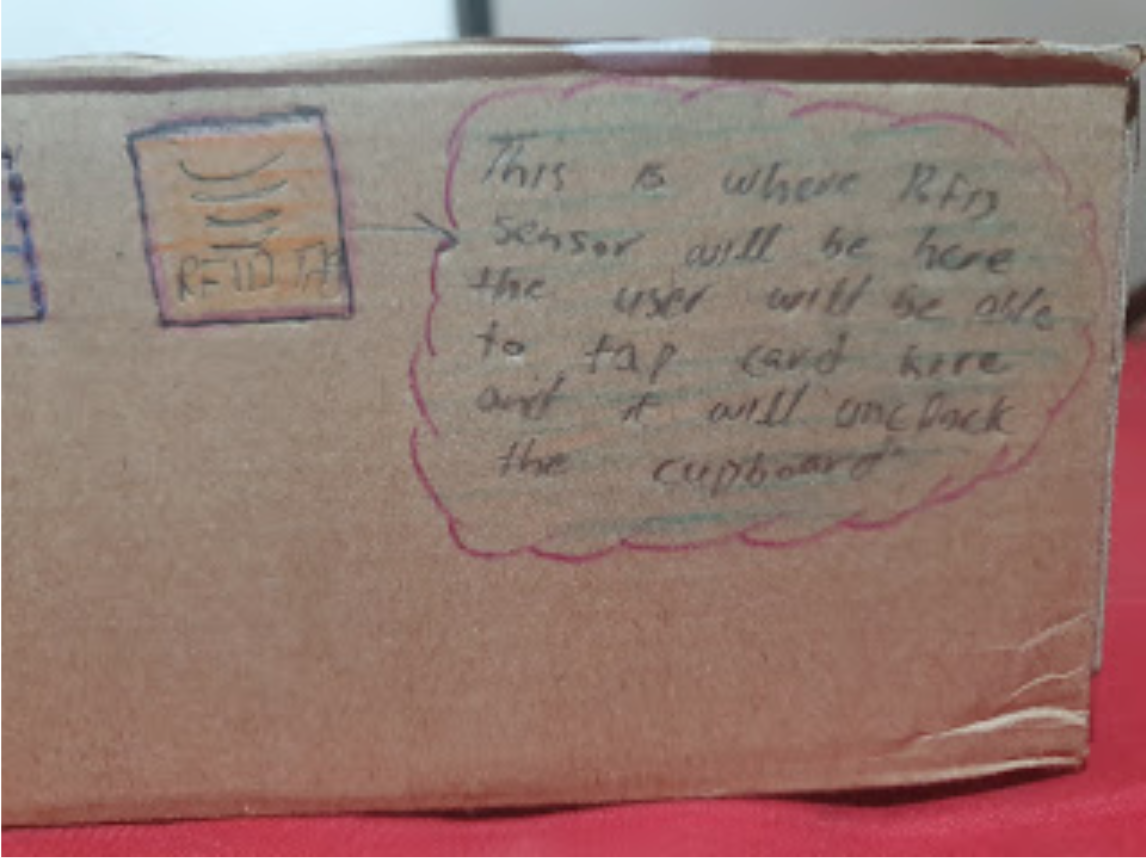 RFID TAG
This is where Rfid
sensor will be here
the user will be able
to tap card here
and it will uncloack
the cupboard